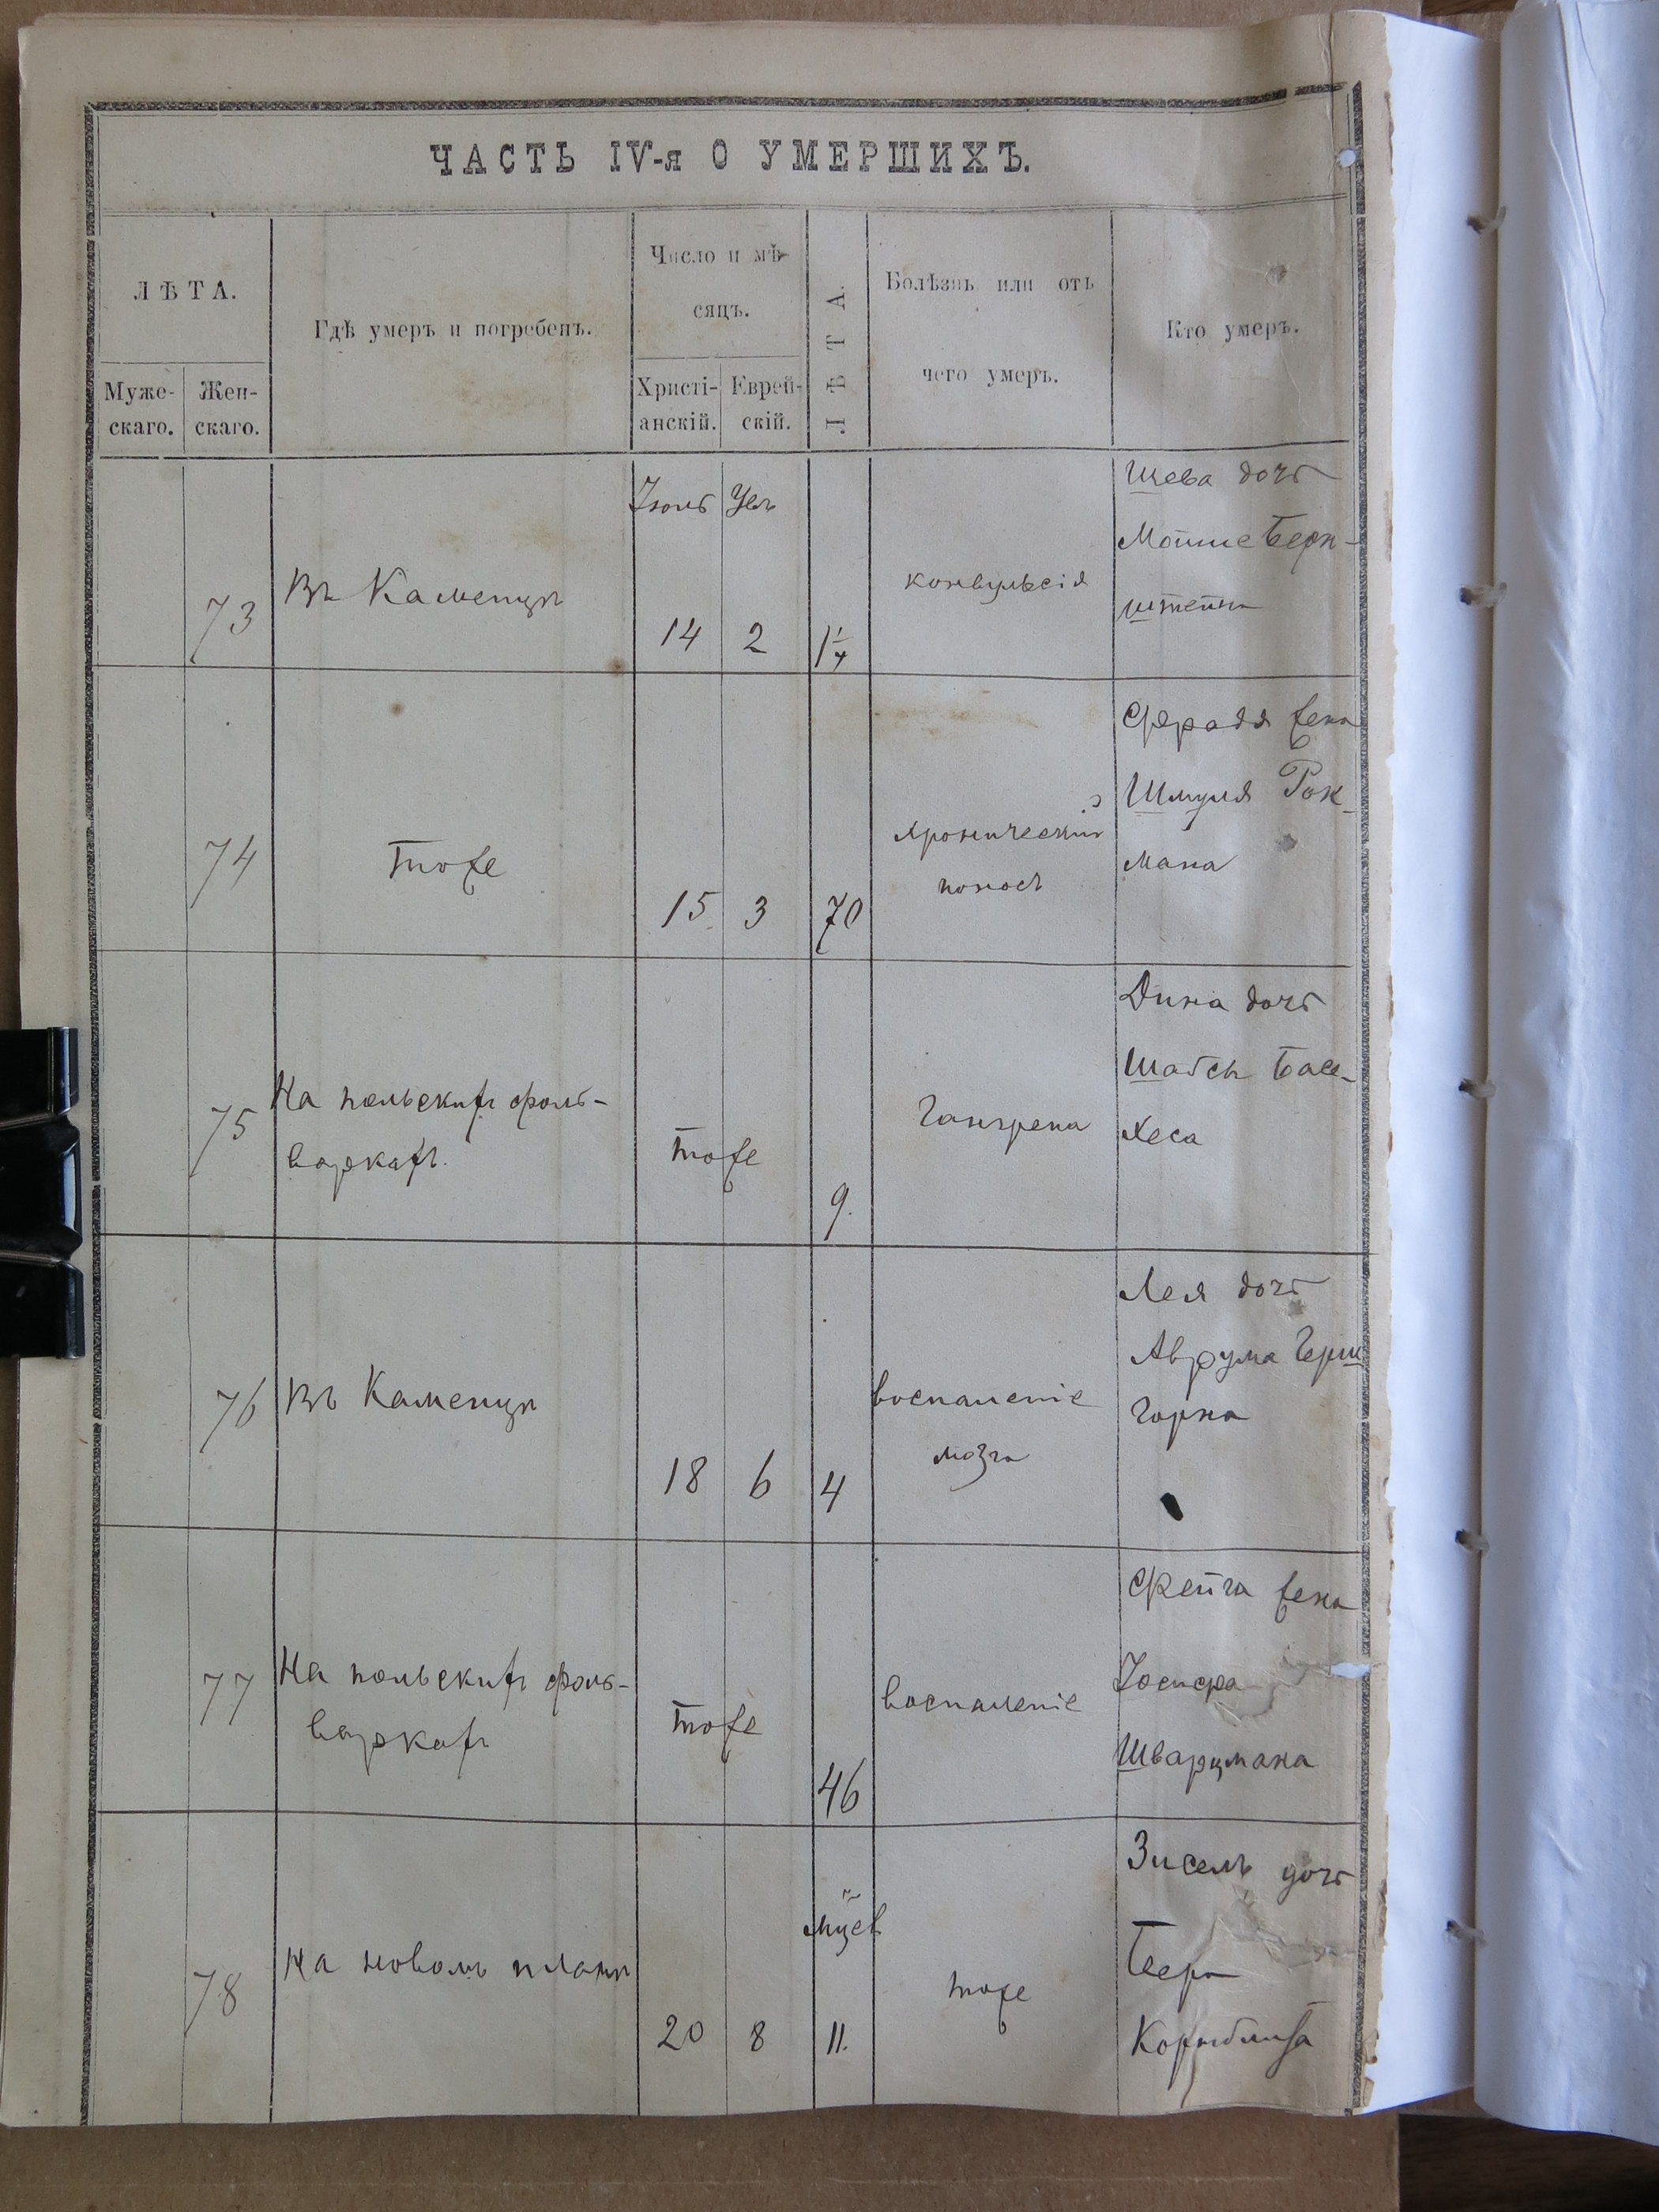 ЧАСТЬ IV-я О УМЕРШИХЪ.
ЛѢТА.
Муже-
скаго.
Жен-
скаго.
Гдѣ умеръ и погребенъ.
Число и мѣ-
сяцъ.
Христі-
анскій.
Еврей-
скій.
ЛѢТА.
Болѣзнь или отъ
чего умеръ.
Кто умеръ.
73
Въ Каменцѣ
Іюль
14
2
1 1/4
конвульсія
Шева дочь
Мошше Берн-
штейна
74
тоже
15
3
70
хроническій
поносъ
Фрадя жена
Шмуля Рок-
мана
75
На польскихъ фоль-
варкахъ.
тоже
9.
Гангрена
Дина дочь
Шабси Басе-
хеса
76
Въ Каменцѣ
18
6
4
воспаленіе
мозга
Лея дочь
Аврума Герш
Горна
77
На польскихъ фоль-
варкахъ
тоже
46
воспаленіе
Фейга жена
Іосифа
Шварцмана
78
На новомъ планѣ
20
8
мцев
11.
тоже
Зисель дочь
Бера